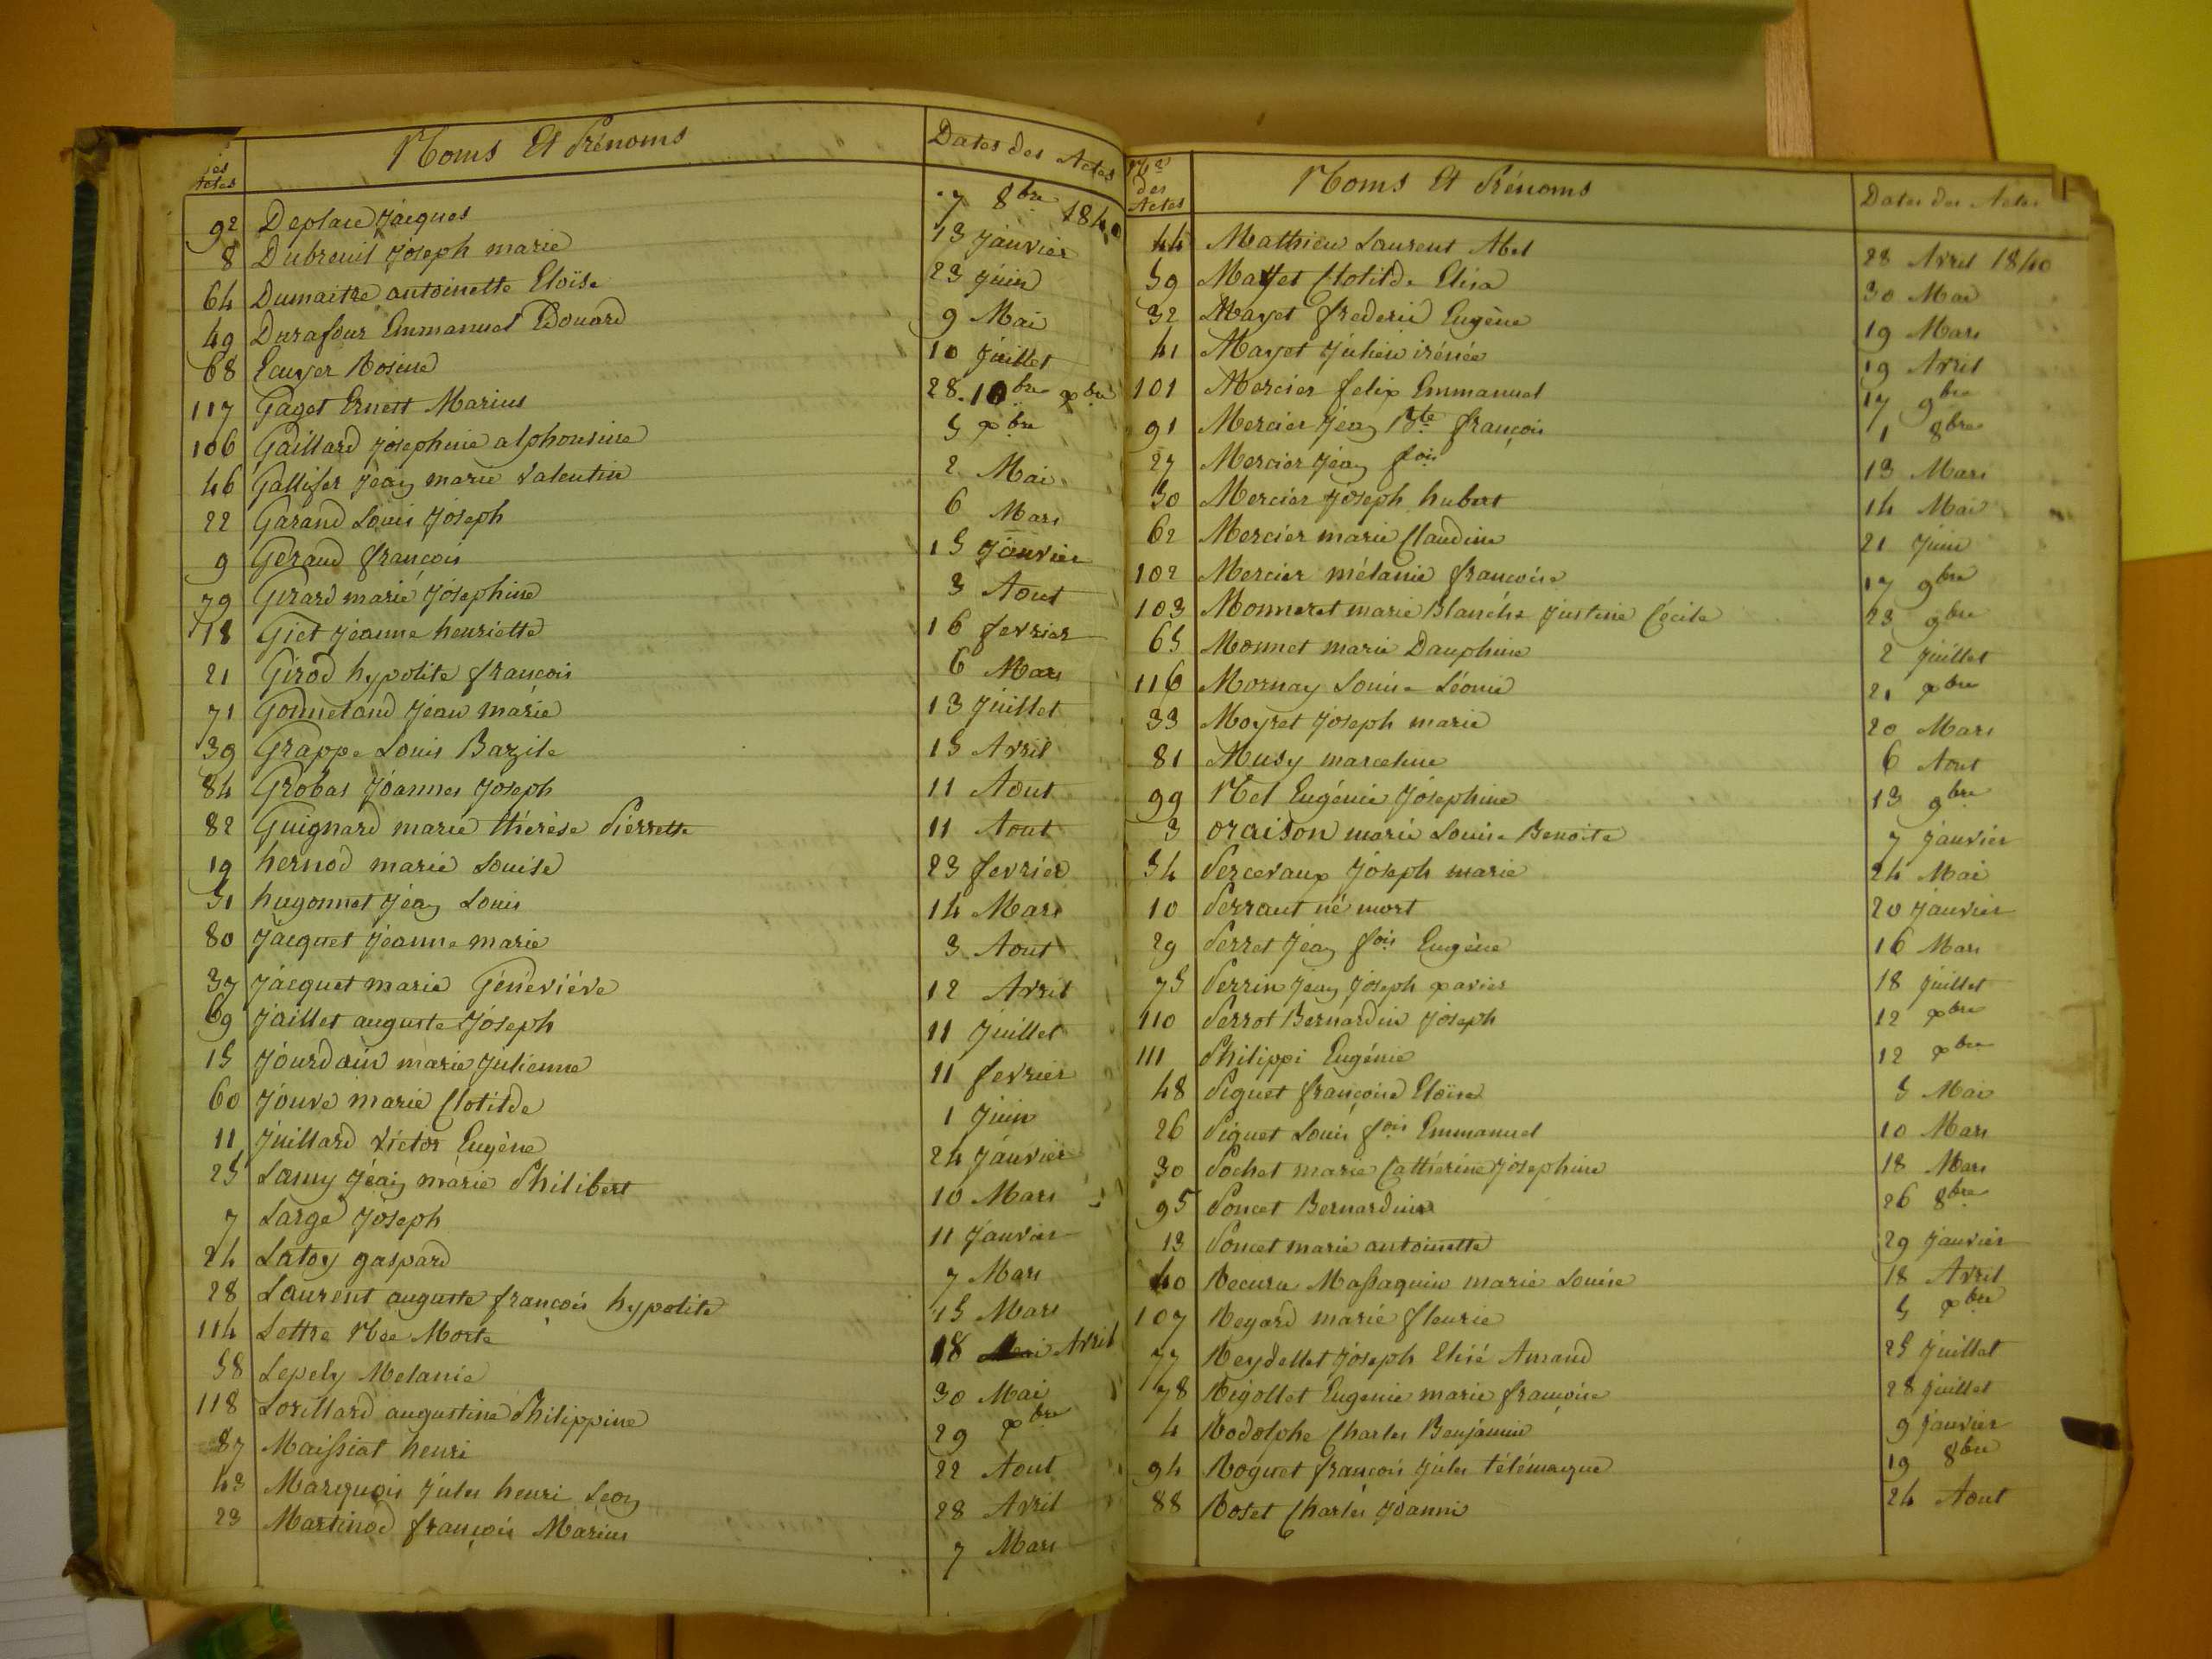 des Actes Noms Et Prénoms Dates des Actes
92 Deplace Jacques 7 8bre 1840
8 Dubreuil Joseph marie 13 janvier
64 Dumaitre antoinette Eloïse 23 juin
49 Durafour Emmanuel Edouard 9 Mai
68 Ecuyer Rosine 10 juillet
117 Gaget Ernest Marius 28 10bre xbre
106 Gaillard josephine alphonsine 5 xbre
46 Gallifer Jean marie Valentin 2 Mai
22 Garand Louis Joseph 6 Mars
9 Geraud françois 15 janvier
79 Girard marie Josephine 3 Aout
18 Giet Jeanne henriette 16 fevrier
21 Girod hypolite françois 6 Mars
71 Gonnetand Jean marie 13 juillet
39 Grappe Louis Bazile 15 Avril
84 Grobas Joannes Joseph 11 Aout
82 Guignard marie thérèse Pierrette 11 Aout
19 hernod marie Louise 23 fevrier
31 hugonnet Jean Louis 14 Mars
80 Jacquet Jeanne marie 3 Aout
37 Jacquet marie Généviéve 12 Avril
69 Jaillet auguste Joseph 11 juillet
15 Jourdain marie Julienne 11 fevrier
60 Jouve marie Clotilde 1 juin
11 Juillard Victor Eugène 24 janvier
25 Lamy Jean marie Philibert 10 Mars
7 Large Joseph 11 janvier
24 Latoy gaspard 7 Mars
28 Laurent auguste françois hypolite 15 Mars
114 Lettre Née Morte 18 Avril
58 Lepely Melanie 30 Mai
118 Lorillard augustine Philippine 29 xbre
87 Maissiat henri 22 Aout
43 Marquois Jules henri Leon 28 Avril
23 Martinod françois Marius 7 Mars
Nos des Actes Noms Et Prénoms Dates des Actes
44 Mathieu Laurent Abel 28 Avril 1840
59 Mayet Clotilde Elisa 30 Mai
32 Mayet frederic Eugène 19 Mars
41 Mayet Julien irénée 19 Avril
101 Mercier felix Emmanuel 17 9bre
91 Mercier Jean Bte françois 1 8bre
27 Mercier Jean fois 13 Mars
50 Mercier Joseph hubert 14 Mai
62 Mercier marie Claudine 21 juin
102 Mercier mélanie françoise 17 9bre
103 Monneret marie Blanche Justine Cécile 23 9bre
65 Monnet marie Dauphine 2 juillet
116 Mornay Louise Léonie 21 xbre
33 Moyret Joseph marie 20 Mars
81 Musy marceline 6 Aout
99 Nel Eugénie Josephine 13 9bre
3 oraison marie Louise Benoite 7 janvier
54 Percevaux Joseph marie 24 Mai
10 Perraut né mort 20 janvier
29 Perret Jean fois Eugène 16 Mars
75 Perrin Jean Joseph xavier 18 juillet
110 Perrot Bernardin Joseph 12 xbre
111 Philippi Eugénie 12 xbre
48 Piquet françoise Eloïse 5 Mai
26 Piquet Louis fois Emmanuel 10 Mars
30 Pochet marie Catthérine Josephine 18 Mars
95 Poncet Bernardine 26 8bre
13 Poncet marie antoinette 29 janvier
40 Recura Massaquin marie Louise 18 Avril
107 Reyard marie fleurie 5 xbre
77 Reydellet Joseph Elisé Amand 25 juillet
78 Rigollet Eugenie marie françoise 28 juillet
4 Rodolphe Charles Benjamin 9 janvier
94 Roguet françois Jules télémaque 19 8bre
88 Roset Charles Joanni 24 Aout